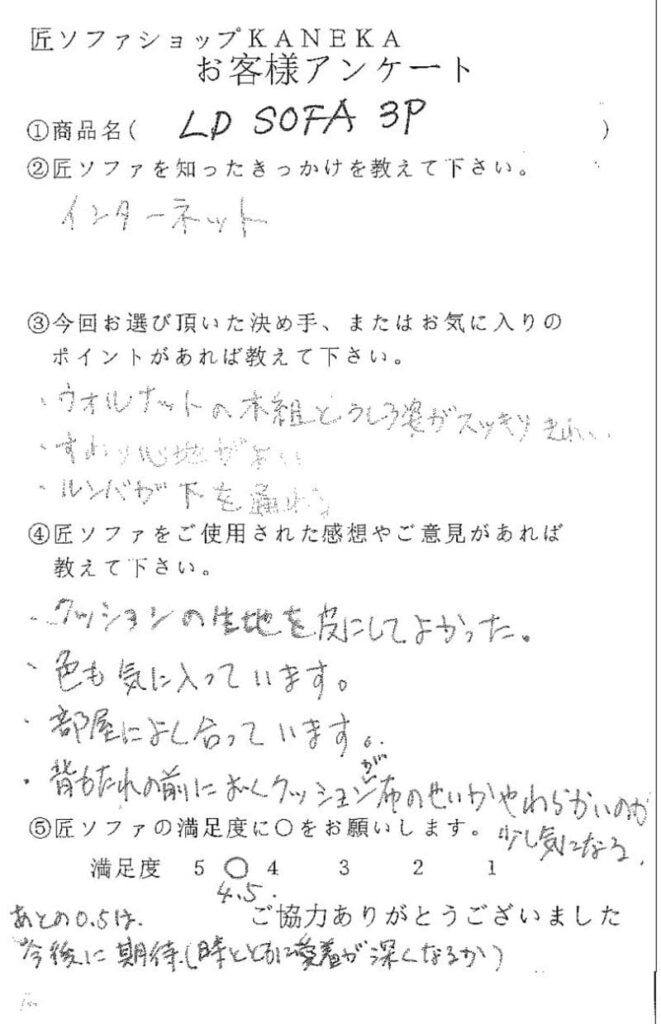 匠ソファショップKANEKA
お客様アンケート
①商品名( LD SOFA 3P )
②匠ソファを知ったきっかけを教えて下さい。
インターネット
③今回お選び頂いた決め手、またはお気に入りの
ポイントがあれば教えて下さい。
・ウオルナットの木組とうしろ姿がスッキリきれい
・すわり心地がよい
・ルンバが下を通れる
④匠ソファをご使用された感想やご意見があれば
教えて下さい。
・クッションの生地を皮にしてよかった。
・色も気に入っています。
・部屋によく合っています。
・背もたれの前におくクッションが布のせいかやわらかいのが
少し気になる。
⑤匠ソファの満足度に○をお願いします。
満足度 5 ○ 4 3 2 1
4.5.
あとの0.5は、
ご協力ありがとうございました
今後に期待(時とともに愛着が深くなるか)